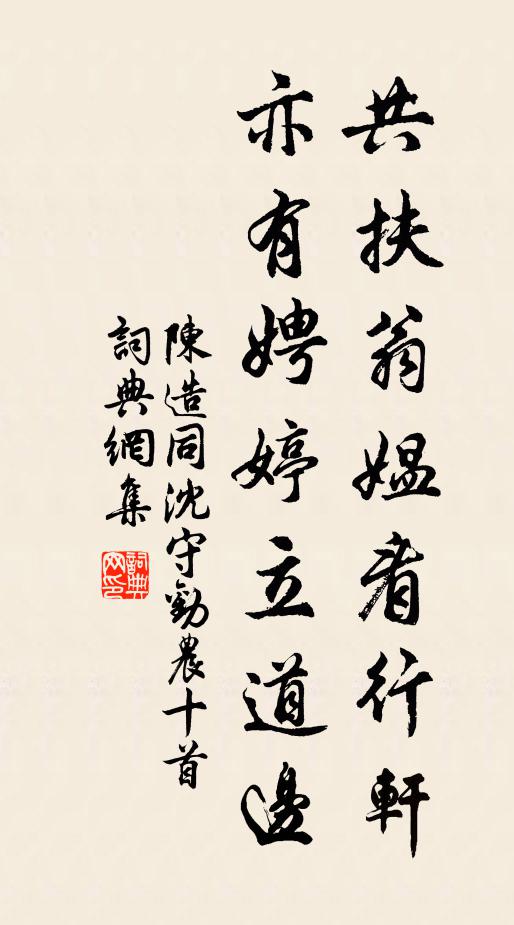 共扶翁媼看行軒
亦有娉婷立道邊
陳造同沈守勸農十首
詞典網集
詞典網印